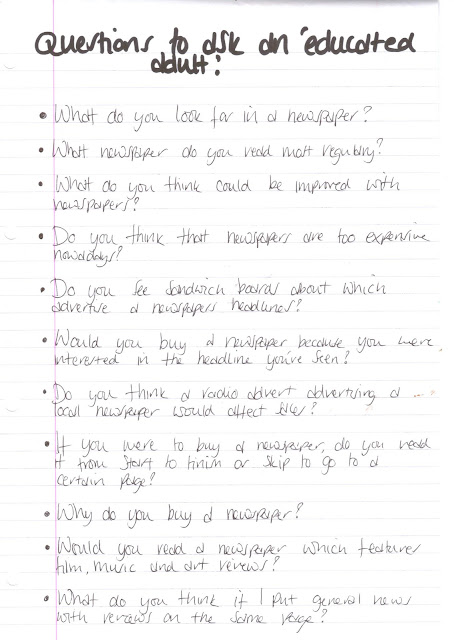 Questions to ask an 'educated
adult:
• What do you look for in a newspaper?
• What newspaper do you read most regulary?
• What do you think could be improved with
newspapers?
• Do you think that newspapers are too expensive
nowadays?
• Do you see sandwich boards about which
advertise a newspapers headlines?
• Would you buy a newspaper because you were
interested in the headline you've seen?
• Do you think a radio advert advertising a
local newspaper would affect sales?
• If you were to buy a newspaper, do you read
it from start to finish or skip to go to a
certain page?
• Why do you buy a newspaper?
• Would you read a newspaper which features
film, music and art reviews?
• What do you think if I put general news
with reviews on the same page?